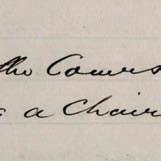 the Cours
a Chair